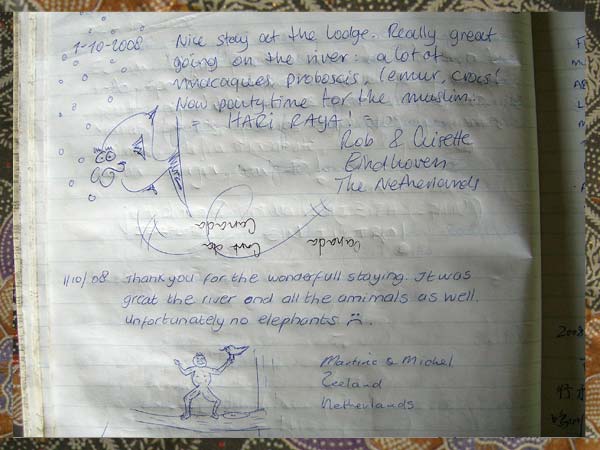 1-10-2008 Nice stay at the lodge. Really great
going on the river: a lot of
macaques, proboscis, lemur, crocs!
Now partytime for the muslim..
= HARI RAYA!
Rob &
Eindhoven
The Netherlands
Canada
Canada
Canada
1/10/08 Thank you for the wonderfull staying. It was
great the river and all the amimals as well.
Unfortunately no elephants ☹.
Martine & Michel
Zeeland
Netherlands
2008